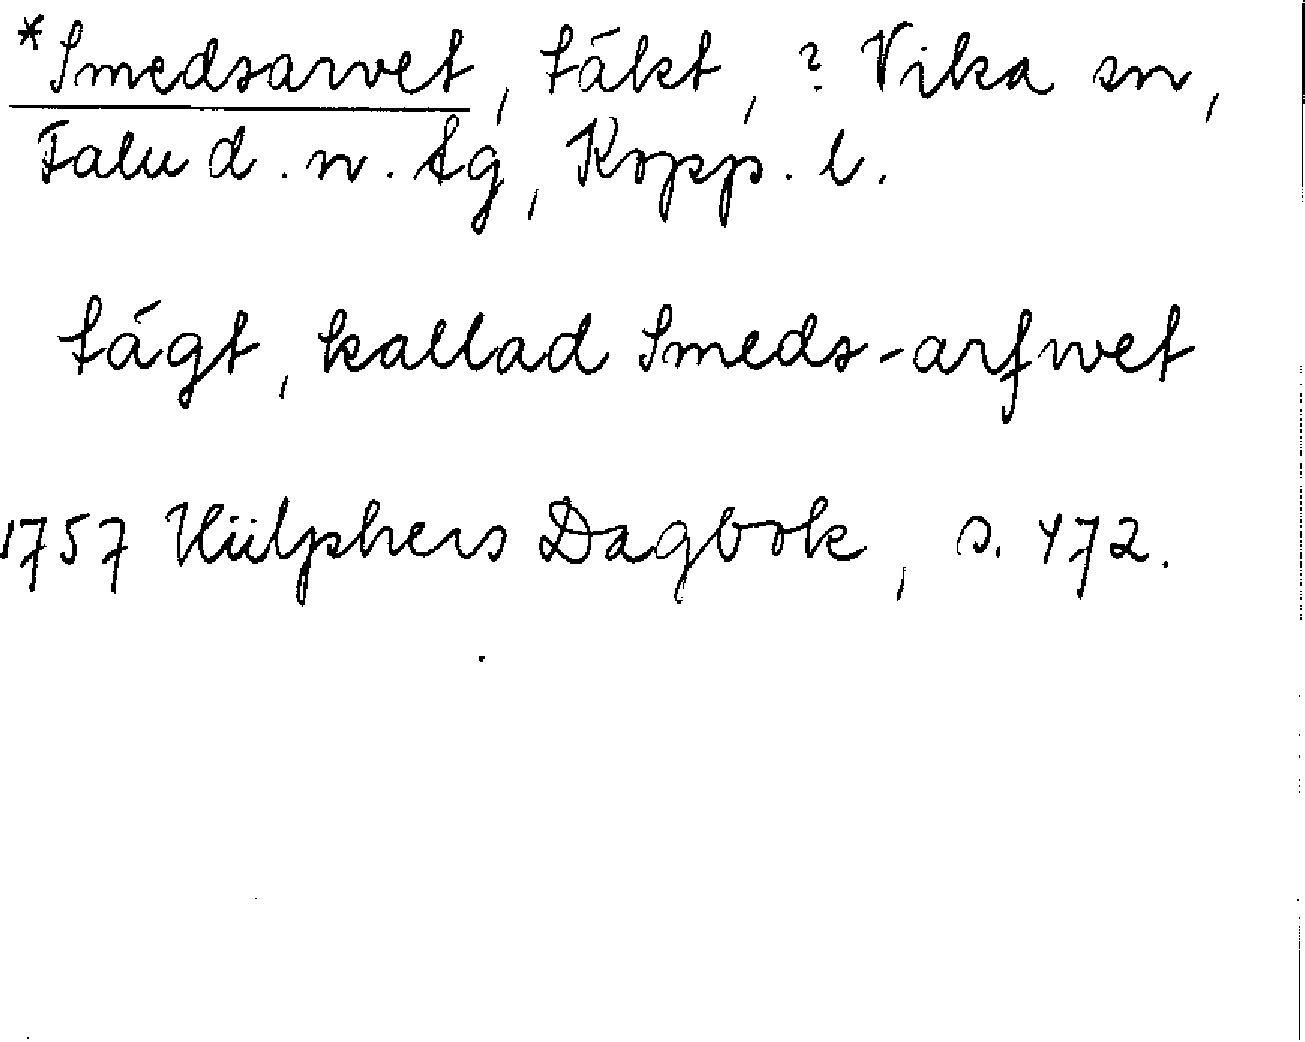 *Smedsarvet, täkt, ? Vika sn,
Falu d. n. tg, Kopp. l.
tägt, kallad Smeds-arfwet
1757 Hülphers Dagbok, s. 472.